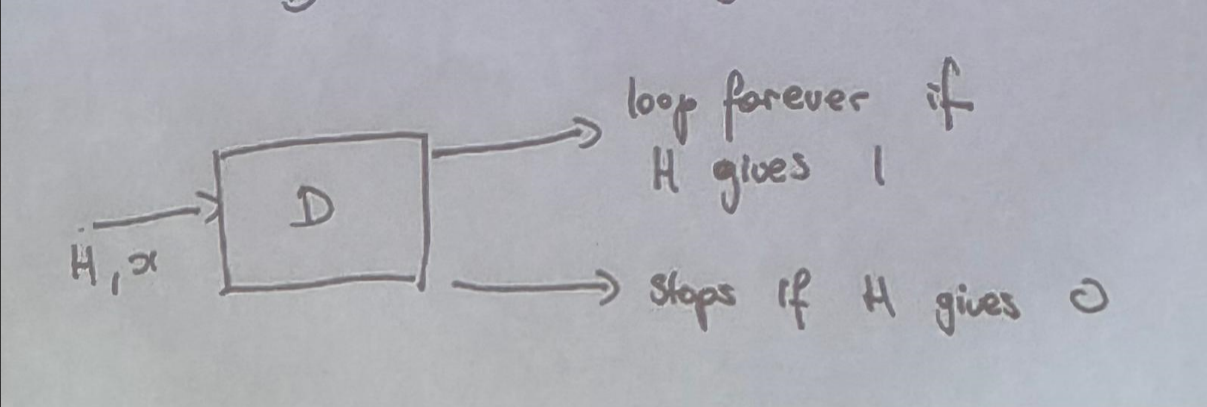 loop forever if
H gives 1
D
H, x
stops if H gives 0